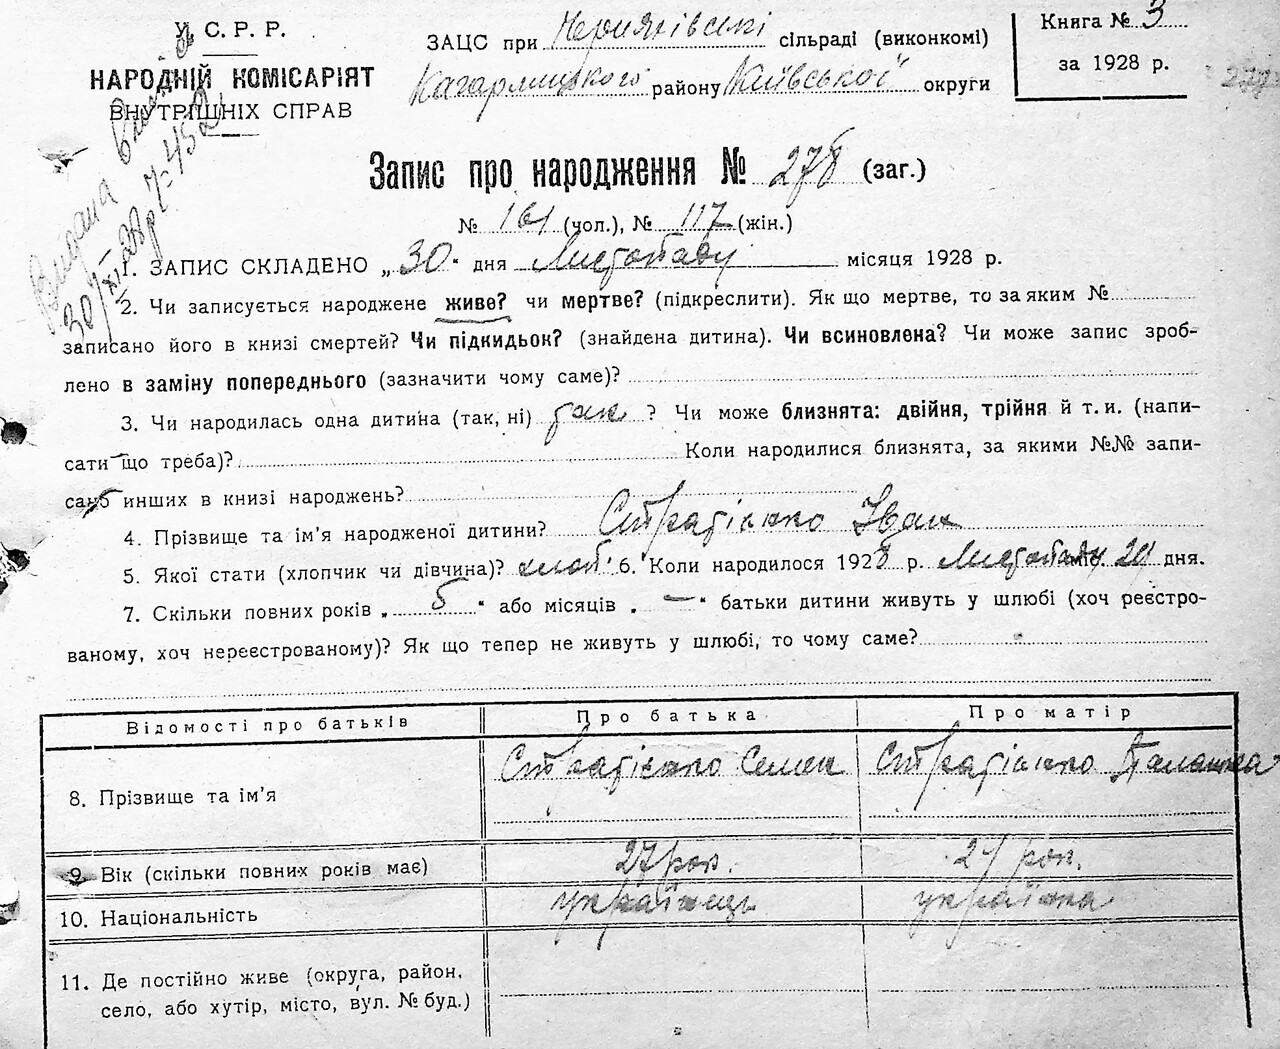 У. С. Р. Р.
НАРОДНІЙ КОМІСАРІЯТ
ВНУТРІШНІХ СПРАВ
ЗАЦС при Черняхівські сільраді (виконкомі)
Кагарлицького району Київської округи
Книга № 3
за 1928 р.
Видана
Запис про народження № 278 (заг.)
№ 161 (чол.), № 117 (жін.)
1. ЗАПИС СКЛАДЕНО „30“ дня Листопаду місяця 1928 р.
2. Чи записується народжене живе? чи мертве? (підкреслити). Як що мертве, то за яким №
записано його в книзі смертей? Чи підкидьок? (знайдена дитина). Чи всиновлена? Чи може запис зроб-
лено в заміну попереднього (зазначити чому саме)?
3. Чи народилась одна дитина (так, ні) так ? Чи може близнята: двійня, трійня й т. и. (напи-
сати що треба)? Коли народилися близнята, за якими №№ запи-
сано инших в книзі народжень?
4. Прізвище та ім’я народженої дитини? Стратієнко Іван
5. Якої стати (хлопчик чи дівчина)? хлоп. 6. Коли народилося 1928 р. Листопаду 29 дня.
7. Скільки повних років „ 5 “ або місяців „ — “ батьки дитини живуть у шлюбі (хоч реєстро-
ваному, хоч нереєстрованому)? Як що тепер не живуть у шлюбі, то чому саме?
Відомості про батьків Про батька Про матір
8. Прізвище та ім’я Стратієнко Семен Стратієнко Палажка
9. Вік (скільки повних років має) 27 рок. 27 рок.
10. Національність українець українка
11. Де постійно живе (округа, район,
село, або хутір, місто, вул. № буд.)